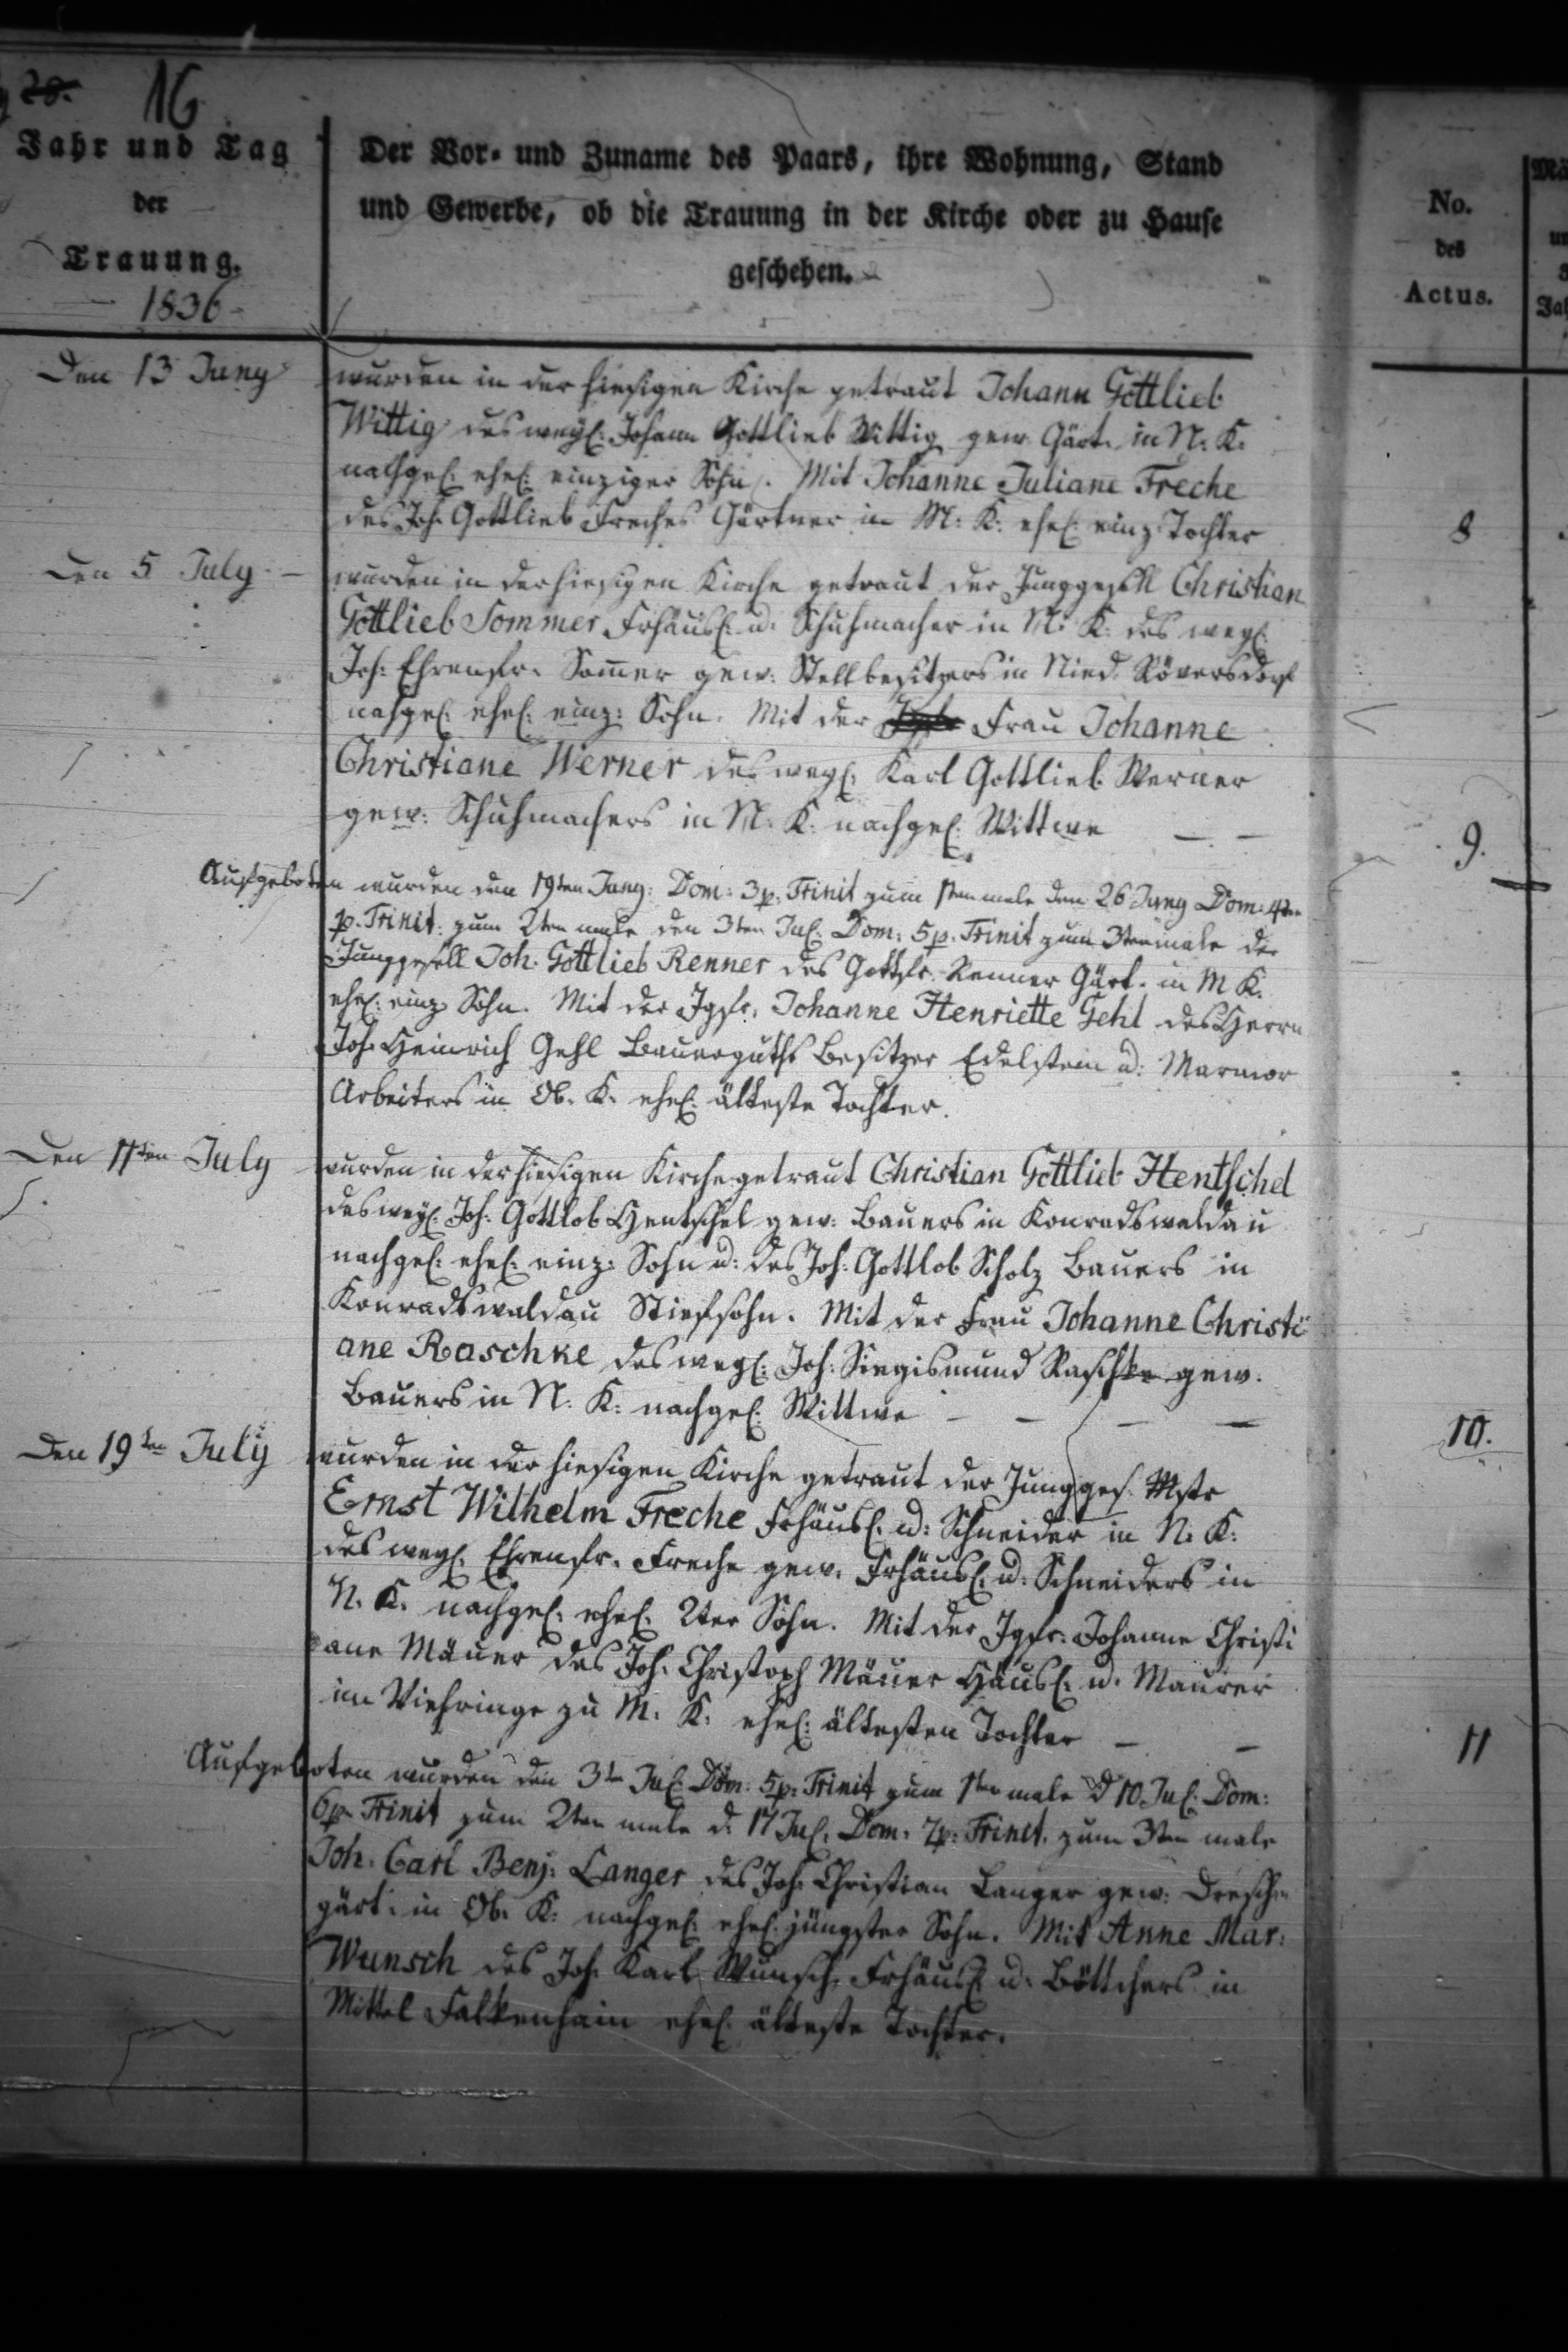 28. 16
Jahr und Tag
der
Trauung.
1836
Der Vor- und Zuname des Paars, ihre Wohnung, Stand
und Gewerbe, ob die Trauung in der Kirche oder zu Hause
geschehen.
No.
des
Actus.
Den 13 Juny
wurden in der hiesigen Kirche getraut Johann Gottlieb
Wittig des weyl: Johann Gottlieb Wittig gew. Gärt. in N. K.
nachgel: ehel: einziger Sohn. Mit Johanne Juliane Freche
des Joh. Gottlieb Freches Gärtner in M: K: ehel: einz: Tochter
8
Den 5 July
wurden in der hiesigen Kirche getraut der Junggesell Christian
Gottlieb Sommer Frhäusl: u: Schuhmacher in M: K: des weyl:
Joh: Ehrenfr. Somer gew: Stellbesitzers in Nied. Röversdorf
nachgel: ehel: einz: Sohn. Mit der Frau Johanne
Christiane Werner des weyl: Karl Gottlieb Werner
gew: Schuhmachers in M. K: nachgel: Wittwe
9.
Aufgeboten wurden den 19ten Juny: Dom: 3 p. Trinit zum 1ten male den 26 Juny Dom: 4ten
p. Trinit: zum 2ten male den 3ten Jul: Dom: 5 p. Trinit zum 3ten male der
Junggesell Joh. Gottlieb Renner des Gottfr. Renner Gärt. in M K.
ehel: einz: Sohn. Mit der Jgfr. Johanne Henriette Gehl des Herrn
Joh. Heinrich Gehl Bauerguths Besitzer Edelstein u: Marmor
Arbeiters in Ob. K. ehel: älteste Tochter.
Den 11ten July
wurden in der hiesigen Kirche getraut Christian Gottlieb Hentschel
des weyl: Joh: Gottlob Hentschel gew: Bauers in Konradswaldau
nachgel: ehel: einz: Sohn u: des Joh: Gottlob Scholz Bauers in
Konradswaldau Stiefsohn. Mit der Frau Johanne Christi
ane Raschke des weyl: Joh: Siegismund Raschke gew.
Bauers in N. K: nachgel: Wittwe
10.
Den 19ten July
wurden in der hiesigen Kirche getraut der Jungges. Mstr
Ernst Wilhelm Freche Frhäusl. u: Schneider in N. K:
des weyl. Ehrenfr. Freche gew. Frhäusl. u: Schneiders in
N. K. nachgel. ehel. 2ter Sohn. Mit der Jgfr: Johanne Christi
ane Mäuer des Joh. Christoph Mäuer Häusl. u. Maurer
im Viehringe zu M. K. ehel: ältesten Tochter
11
Aufgeboten wurden den 3ten Jul: Dom: 5 p: Trinit zum 1ten male d 10 Jul: Dom:
6 p Trinit zum 2ten male d. 17 Jul. Dom: 7 p: Trinit. zum 3ten male
Joh. Carl Benj: Langer des Joh: Christian Langer gew: Dresch
gärt: in Ob. K: nachgel: ehel. jüngster Sohn. Mit Anne Mar:
Wunsch des Joh. Karl Wunsch Frhäusl u: Böttchers in
Mittel Falkenhain ehel: älteste Tochter.